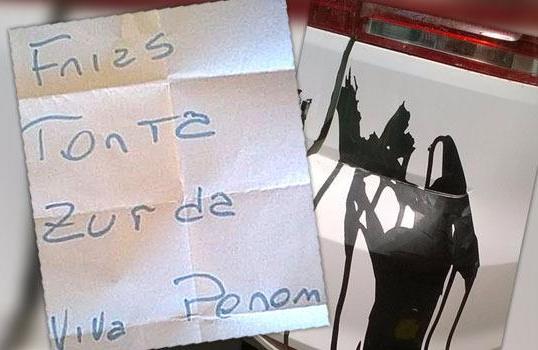 Fnizs
Tonta
Zurda
Viva Penom